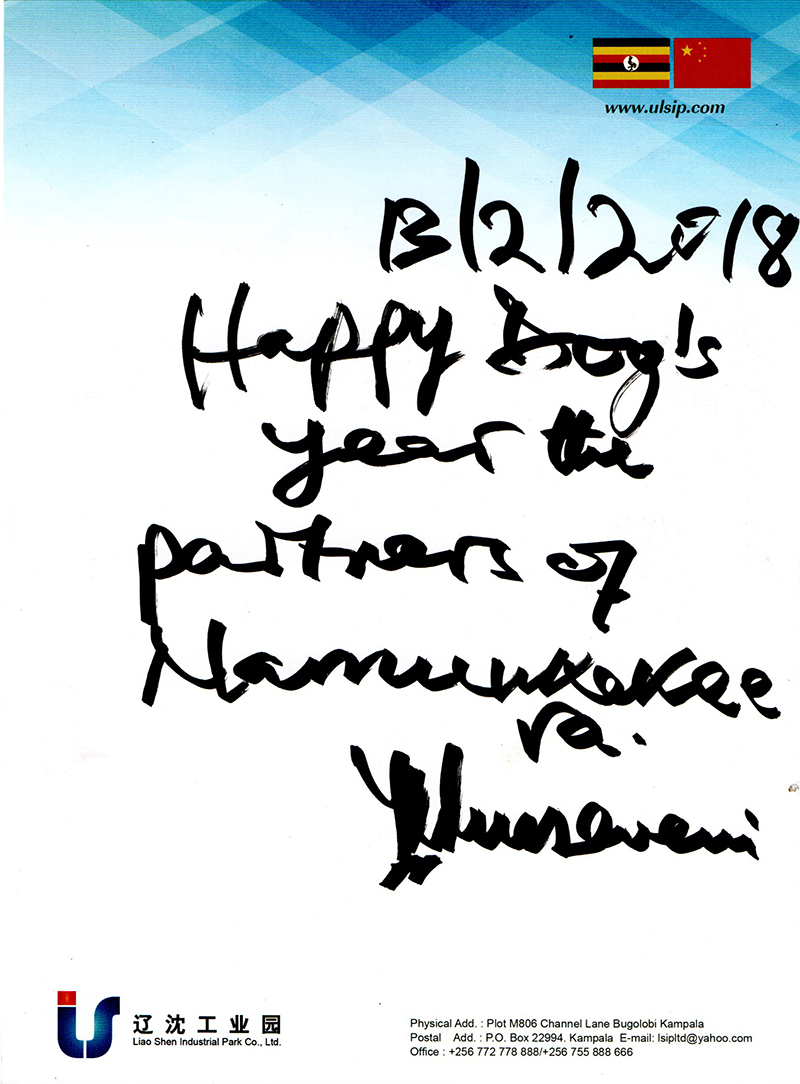 www.ulsip.com
13/2/2018
Happy Dog's
year the
partners of
Namunkekee
ra.
YMuseveni
辽沈工业园
Liao Shen Industrial Park Co., Ltd.
Physical Add. : Plot M806 Channel Lane Bugolobi Kampala
Postal Add. : P.O. Box 22994. Kampala E-mail: lsipltd@yahoo.com
Office : +256 772 778 888/+256 755 888 666